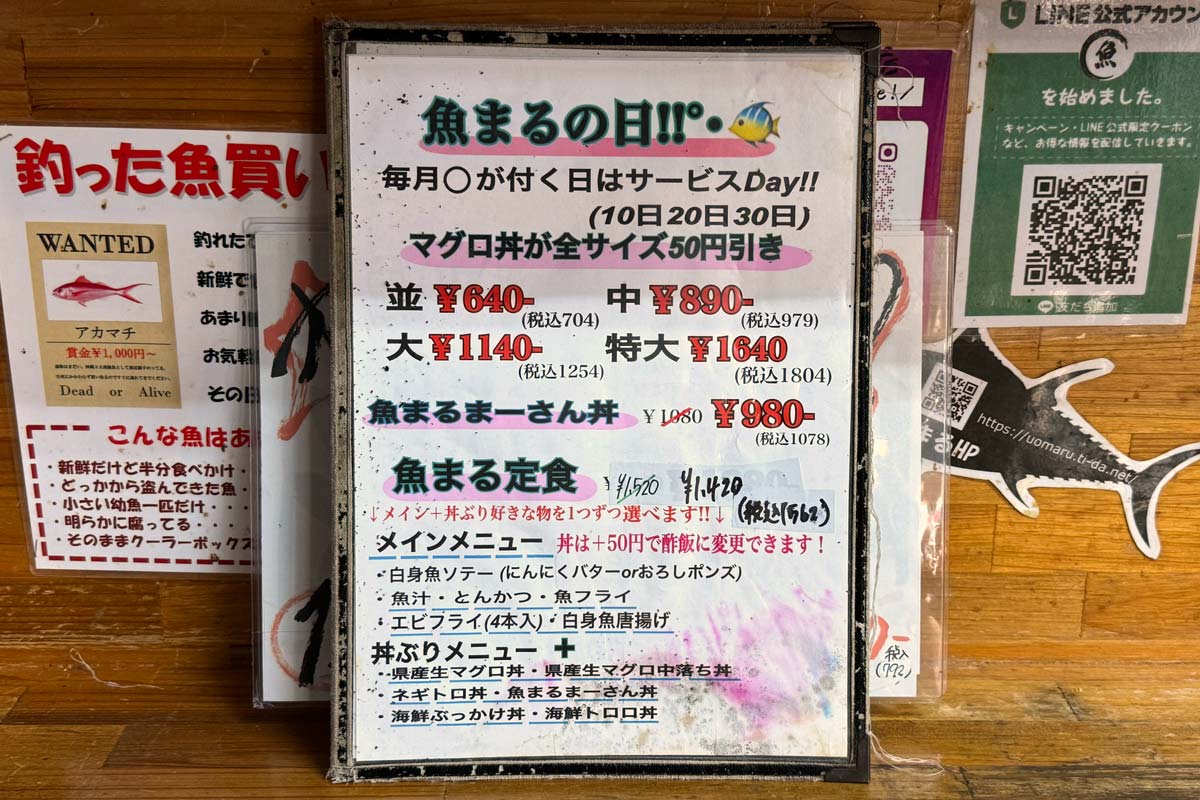 釣った魚買い
WANTED
アカマチ
賞金￥1,000円〜
Dead or Alive
釣れた
新鮮で
あまり
お気軽
その日
こんな魚はあ
・新鮮だけど半分食べかけ・
・どっかから盗んできた魚・
・小さい幼魚一匹だけ・・・
・明らかに腐ってる・・・・
・そのままクーラーボックス
魚まるの日!!°・
毎月〇が付く日はサービスDay!!
(10日20日30日)
マグロ丼が全サイズ50円引き
並 ￥640- (税込704) 中 ￥890- (税込979)
大 ￥1140- (税込1254) 特大 ￥1640 (税込1804)
魚まるまーさん丼 ￥1080 ￥980- (税込1078)
魚まる定食 ￥1,520 ￥1,420 (税込1562)
↓メイン+丼ぶり好きな物を1つずつ選べます!!↓
メインメニュー 丼は+50円で酢飯に変更できます！
・白身魚ソテー (にんにくバターorおろしポンズ)
・魚汁・とんかつ・魚フライ
・エビフライ(4本入)・白身魚唐揚げ
丼ぶりメニュー +
・県産生マグロ丼・県産生マグロ中落ち丼
・ネギトロ丼・魚まるまーさん丼
・海鮮ぶっかけ丼・海鮮トロロ丼
税入
(792)
LINE公式アカウン
魚
を始めました。
キャンペーン・LINE公式限定クーポン
など、お得な情報を配信していきます。
友だち追加
まるHP
https://uomaru.ti-da.net/